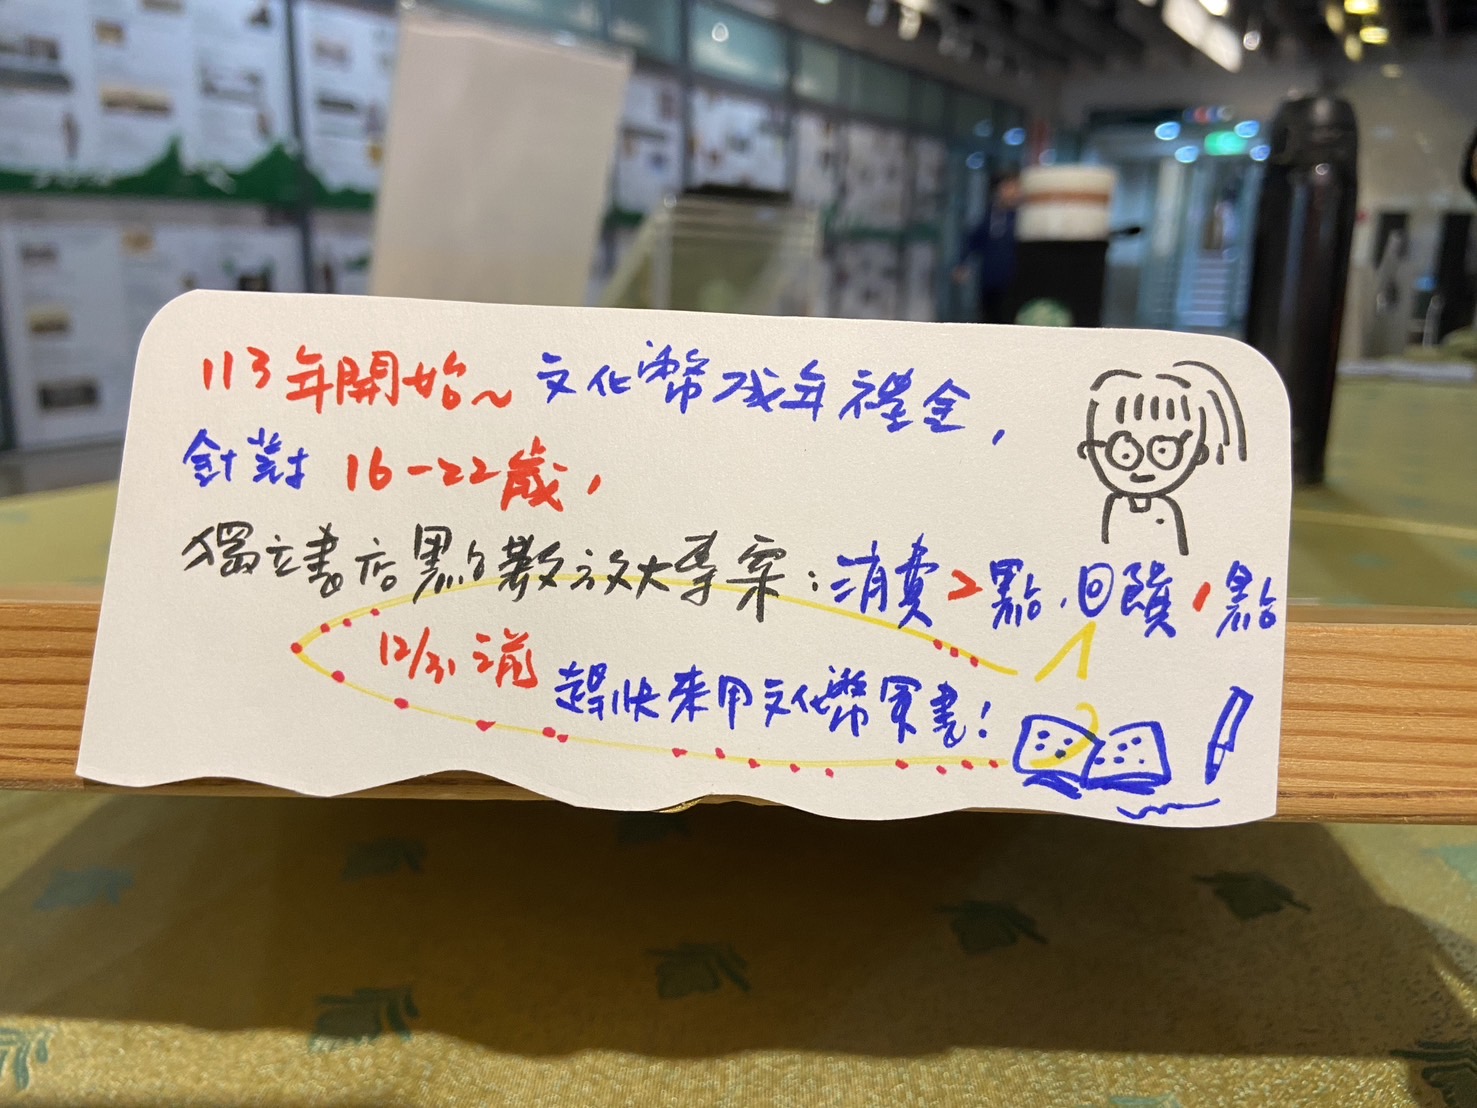 113年開始~文化幣成年禮金,
針對 16-22歲,
獨立書店點數放大專案:消費2點.回饋1點
12/31前 趕快來用文化幣買書!